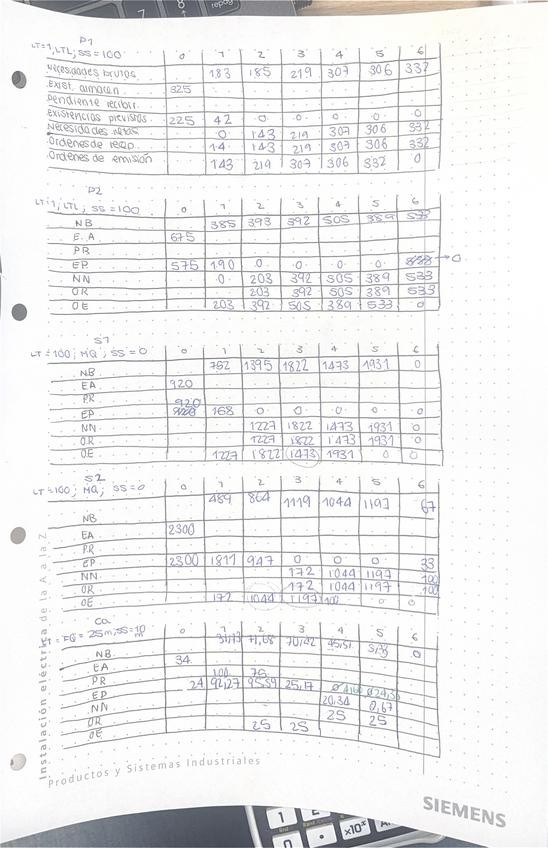 repag
P1
LT=1, LTL, SS=100 0 1 2 3 4 5 6
Necesidades brutas 183 185 219 307 306 332
Exist. almacen 325
Pendiente recibir
Existencias previstas 225 42 0 0 0 0 0
Necesidades netas 0 143 219 307 306 332
Ordenes de recep. 14 143 219 307 306 332
Ordenes de emisión 143 219 307 306 332 0
P2
LT=1, LTL, SS=100 0 1 2 3 4 5 6
NB 385 393 392 505 389 533
E.A 675
PR
EP 575 190 0 0 0 0 → 0
NN 0 203 392 505 389 533
OR 203 392 505 389 533
OE 203 392 505 389 533 0
S1
LT=100; MQ; SS=0 0 1 2 3 4 5 6
NB 752 1395 1822 1473 1931 0
EA 920
PR
EP 920 168 0 0 0 0 0
NN 1227 1822 1473 1931 0
OR 1227 1822 1473 1931 0
OE 1227 1822 1473 1931 0 0
S2
LT=100; MQ; SS=0 0 1 2 3 4 5 6
NB 489 864 1119 1044 1197 67
EA 2300
PR
EP 2300 1811 947 0 0 0 33
NN 172 1044 1197 100
OR 172 1044 1197 100
OE 172 1044 1197 100 0 0
Ca
FQ = 25m, SS=10 0 1 2 3 4 5 6
NB 31,73 71,68 70,42 45,51 0
EA 34
PR 100 75
EP 24 92,27 95,59 25,17
NN 20,34 0,67
OR 25 25
OE 25 25
Instalación eléctrica de la A a la Z
Productos y Sistemas Industriales
SIEMENS
1
0
•
×10ˣ